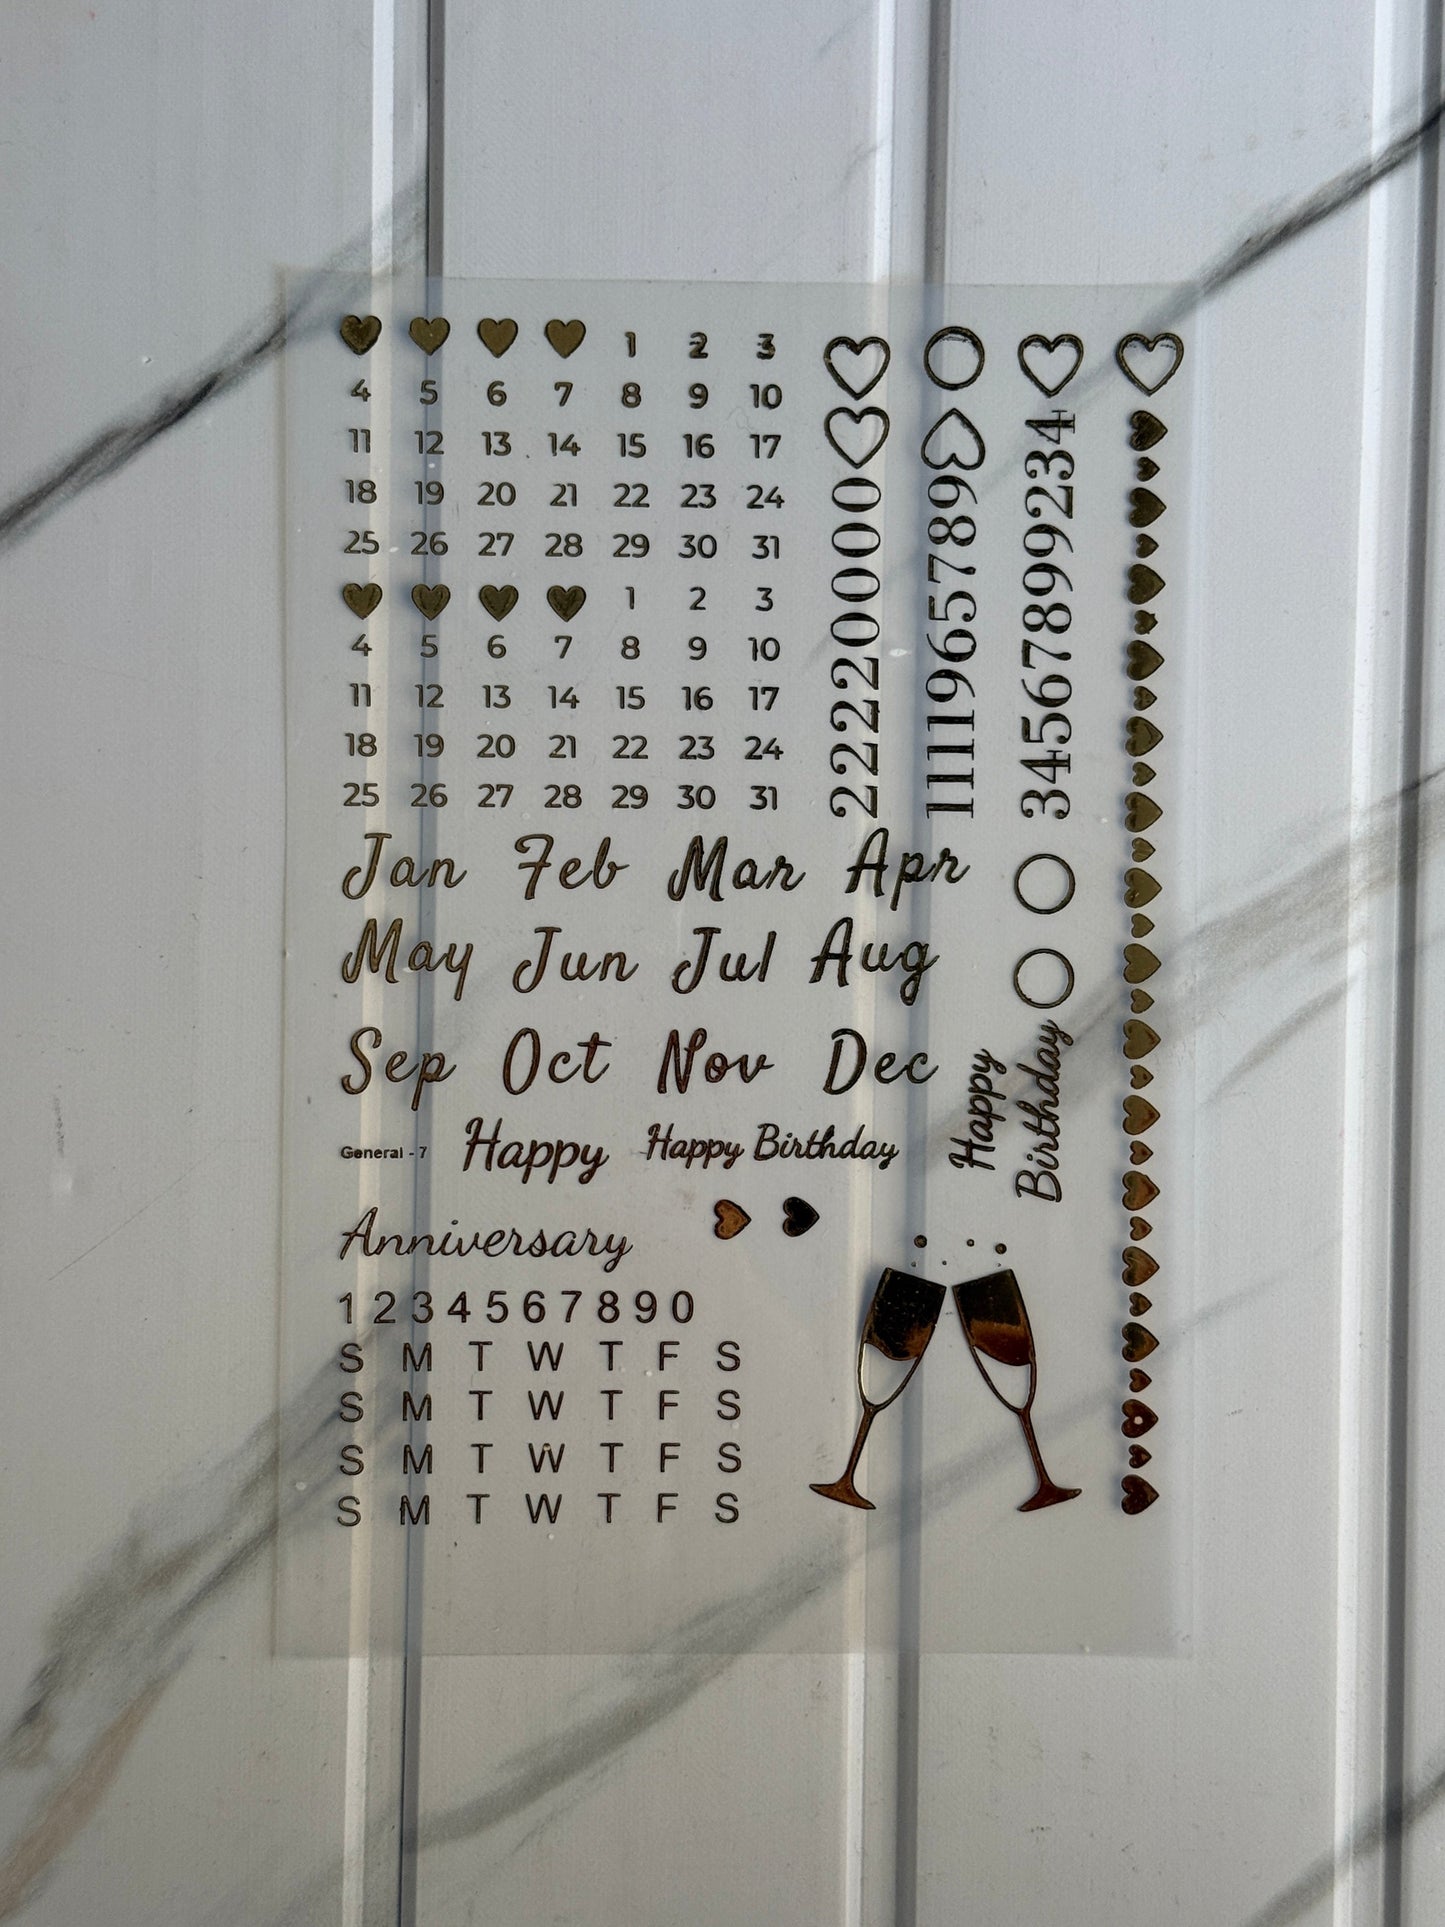 1 2 3
4 5 6 7 8 9 10
11 12 13 14 15 16 17
18 19 20 21 22 23 24
25 26 27 28 29 30 31
1 2 3
4 5 6 7 8 9 10
11 12 13 14 15 16 17
18 19 20 21 22 23 24
25 26 27 28 29 30 31
22220000
1111965789
345678999234
Jan Feb Mar Apr
May Jun Jul Aug
Sep Oct Nov Dec
General - 7 Happy Happy Birthday
Happy
Birthday
Anniversary
1 2 3 4 5 6 7 8 9 0
S M T W T F S
S M T W T F S
S M T W T F S
S M T W T F S